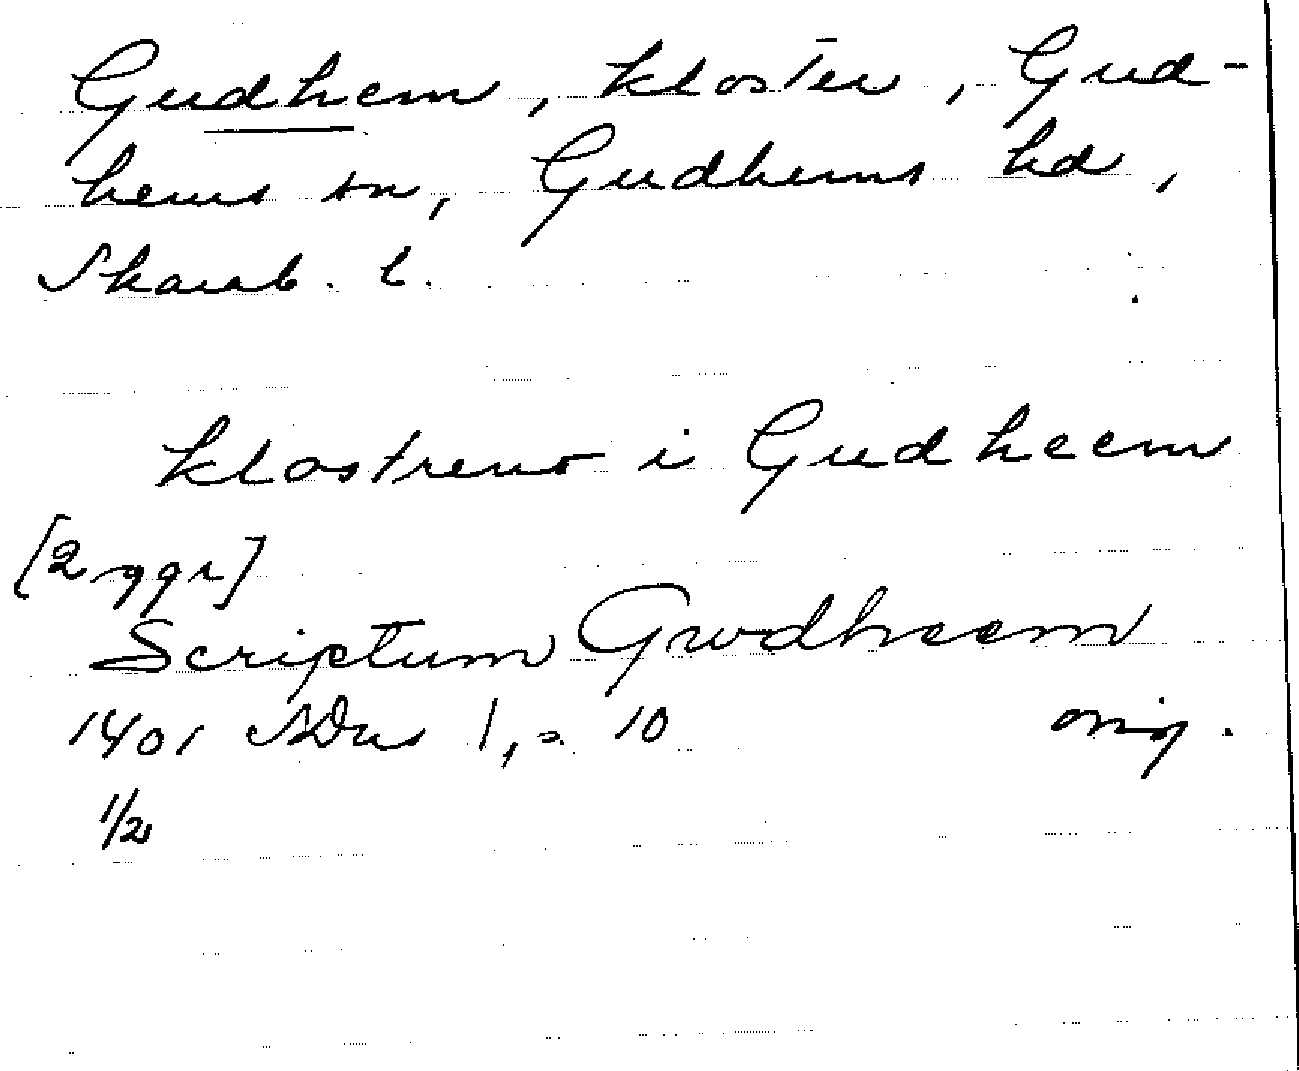 Gudhem, kloster, Gud-
hems sn, Gudhems hd,
Skarab. l.
klostreno i Gudheem
[2 ggr]
Scriptum Gwdheem
1401 SDns 1, s. 10 orig.
1/2